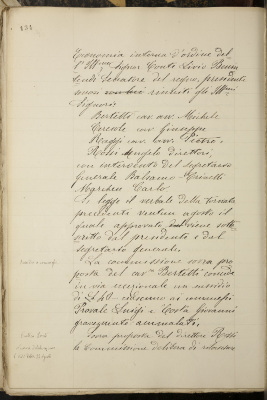 134
Economia interna d'ordine del-
l'Ill.mo Signor Conte Livio Benin
tendi Senatore del regno, presidente
sonosi riuniti gli Ill.mi
Signori:
Bertetti cav. avv. Michele
Ceresole cav. Giuseppe
Radzj cav. avv. Pietro
Rossi Angelo direttori,
con intervento del Segretario
Generale Balsamo-Crivelli
Marchese Carlo
Si legge il verbale della tornata
precedente ventun agosto il
quale approvato viene sotto
scritto dal presidente e dal
Segretario generale.
La commissione sovra pro
posta del cav. Bertetti concede
in via eccezionale un sussidio
di L. 40 caduno ai commessi
Provale Luigi e Costa Giovanni
gravemente ammalati.
Sovra proposta del direttore Rossi
la Commissione delibera di rilasciare